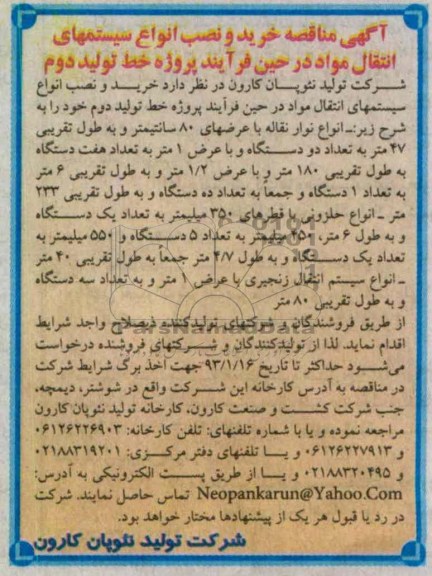 آگهی مناقصه خرید و نصب انواع سیستمهای
انتقال مواد در حین فرآیند پروژه خط تولید دوم
شرکت تولید نئوپان کارون در نظر دارد خرید و نصب انواع
سیستمهای انتقال مواد در حین فرآیند پروژه خط تولید دوم خود را به
شرح زیر:ـ انواع نوار نقاله با عرضهای ۸۰ سانتیمتر و به طول تقریبی
۴۷ متر به تعداد دو دستگاه و با عرض ۱ متر به تعداد هفت دستگاه
به طول تقریبی ۱۸۰ متر و با عرض ۱/۲ متر و به طول تقریبی ۶ متر
به تعداد ۱ دستگاه و جمعاً به تعداد ده دستگاه و به طول تقریبی ۲۳۳
متر ـ انواع حلزونی با قطرهای ۳۵۰ میلیمتر به تعداد یک دستگاه
و به طول ۶ متر، ۴۵۰ میلیمتر به تعداد ۵ دستگاه و ۵۵۰ میلیمتر به
تعداد یک دستگاه و به طول ۴/۷ متر جمعاً به طول تقریبی ۴۰ متر
ـ انواع سیستم انتقال زنجیری با عرض ۱ متر و به تعداد سه دستگاه
و به طول تقریبی ۸۰ متر
از طریق فروشندگان و شرکتهای تولیدکننده ذیصلاح واجد شرایط
اقدام نماید. لذا از تولیدکنندگان و شرکتهای فروشنده درخواست
می‌شود حداکثر تا تاریخ ۹۳/۱/۱۶ جهت اخذ برگ شرایط شرکت
در مناقصه به آدرس کارخانه این شرکت واقع در شوشتر، دیمچه،
جنب شرکت کشت و صنعت کارون، کارخانه تولید نئوپان کارون
مراجعه نموده و یا با شماره تلفنهای: تلفن کارخانه: ۰۶۱۲۶۲۲۶۹۰۳
و ۰۶۱۲۶۲۲۷۹۱۳ و یا تلفنهای دفتر مرکزی: ۰۲۱۸۸۳۱۹۲۰۱
و ۰۲۱۸۸۳۲۰۴۹۵ و یا از طریق پست الکترونیکی به آدرس:
Neopankarun@Yahoo.Com تماس حاصل نمایند. شرکت
در رد یا قبول هر یک از پیشنهادها مختار خواهد بود.
شرکت تولید نئوپان کارون